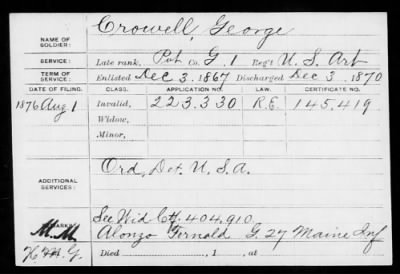 Crowell, George
NAME OF SOLDIER:
SERVICE: Late rank, Pvt Co. G, 1 Reg't U. S. Art
TERM OF SERVICE: Enlisted Dec 3, 1867 Discharged Dec 3, 1870
DATE OF FILING. CLASS. APPLICATION NO. LAW. CERTIFICATE NO.
1876 Aug 1 Invalid, 223.330 145.419
Widow,
Minor,
ADDITIONAL SERVICES: Ord. Det. U.S.A.
REMARKS: See Wid Ctf. 404.910
M.M. Alonzo Fernald G. 27 Maine Inf
Died , 1 , at